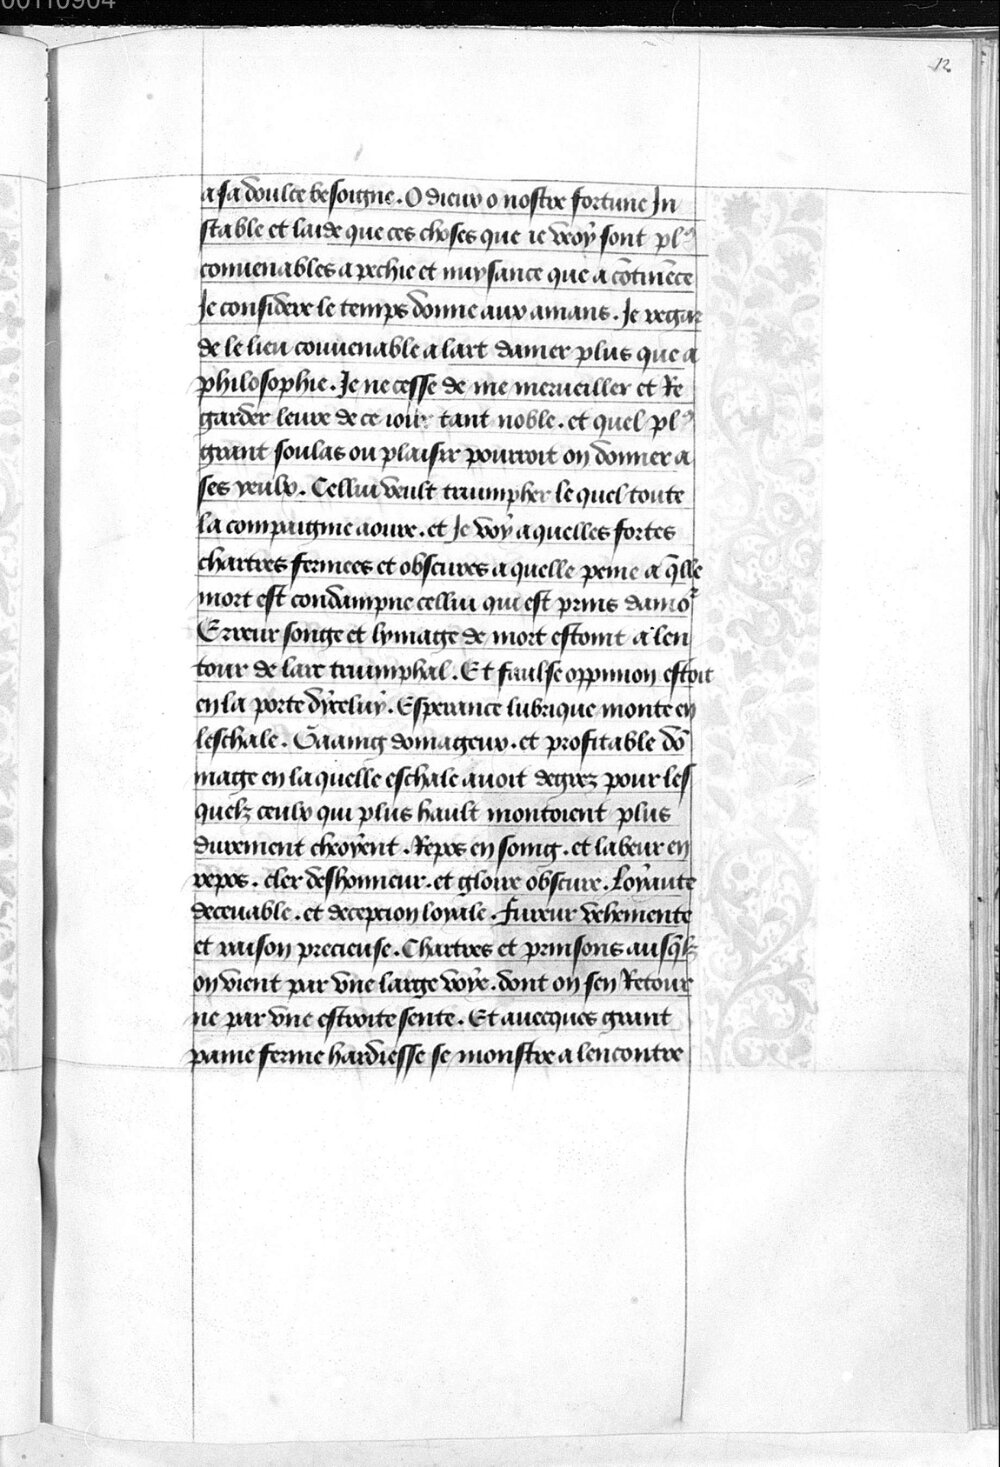 12
a sa doulce besoigne. O dieux o nostre fortune In
stable et laide que ces choses que ie vroy sont plꝰ
conuenables a pechie et nuysance que a cōtinēce
Je considere le temps donne aux amans. Je regar
de le lieu conuenable a lart damer plus que a
philosophie. Je ne cesse de me merueiller et Re
garder leure de ce iour tant noble. et quel plꝰ
grant soulas ou plaisir pourroit on donner a
ses yeulx. Cellui veult triumpher le quel toute
la compaignie aoure. et Je voy a quelles fortes
chartres fermees et obscures a quelle peine a q̄lle
mort est condampne cellui qui est prins damoʳ
Erreur songe et lymage de mort estoint a len
tour de larc triumphal. Et faulse oppinion estoit
en la porte dyceluy. Esperance lubrique monte en
leschale. Gaaing domageux. et profitable dō
mage en la quelle eschale auoit degrez pour les
quelz ceulx qui plus hault montoient plus
durement cheoyent. Repos en soing. et labeur en
repos. cler deshonneur. et gloire obscure. Loyaute
deceuable. et decepcion loyale. Fureur vehemente
et raison precieuse. Chartres et prinsons ausq̄lz
on vient par vne large voye. dont on sen Retour
ne par vne estroite sente. Et auecques grant
paine ferme hardiesse se monstre a lencontre